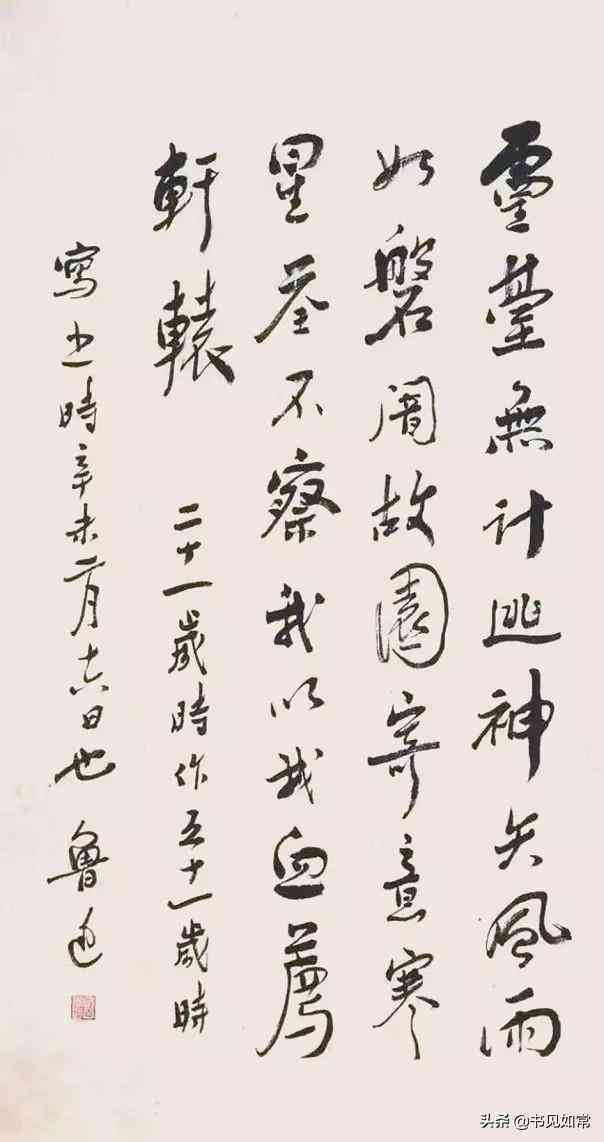 靈臺無計逃神矢風雨
如磐闇故園寄意寒
星荃不察我以我血薦
軒轅 二十一歲時作五十一歲時
寫之時辛未二月十六日也 魯迅
头条 @书见如常